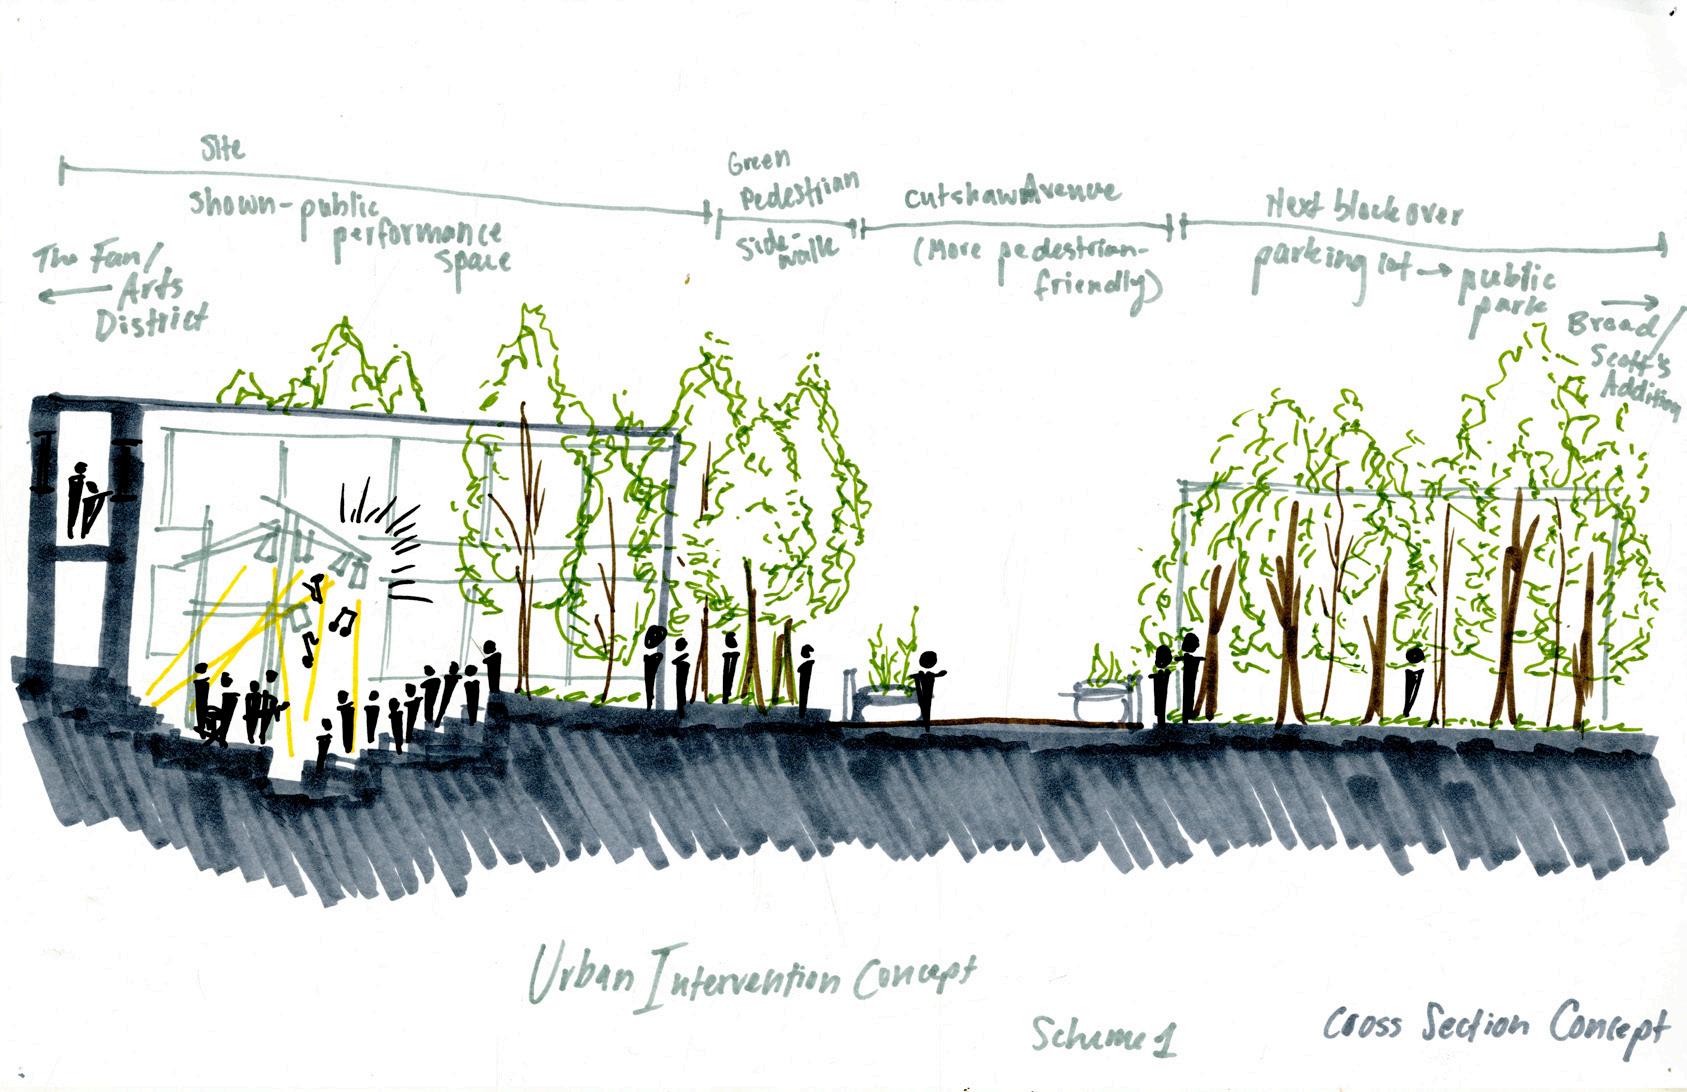 Site
Shown-public
performance
space
Green
Pedestrian
Side-
walk
Cutshaw Avenue
(More pedestrian-
friendly)
Next block over
parking lot → public
park
The Fan/
← Arts
District
→
Broad/
Scott's
Addition
Urban Intervention Concept
Scheme 1
Cross Section Concept